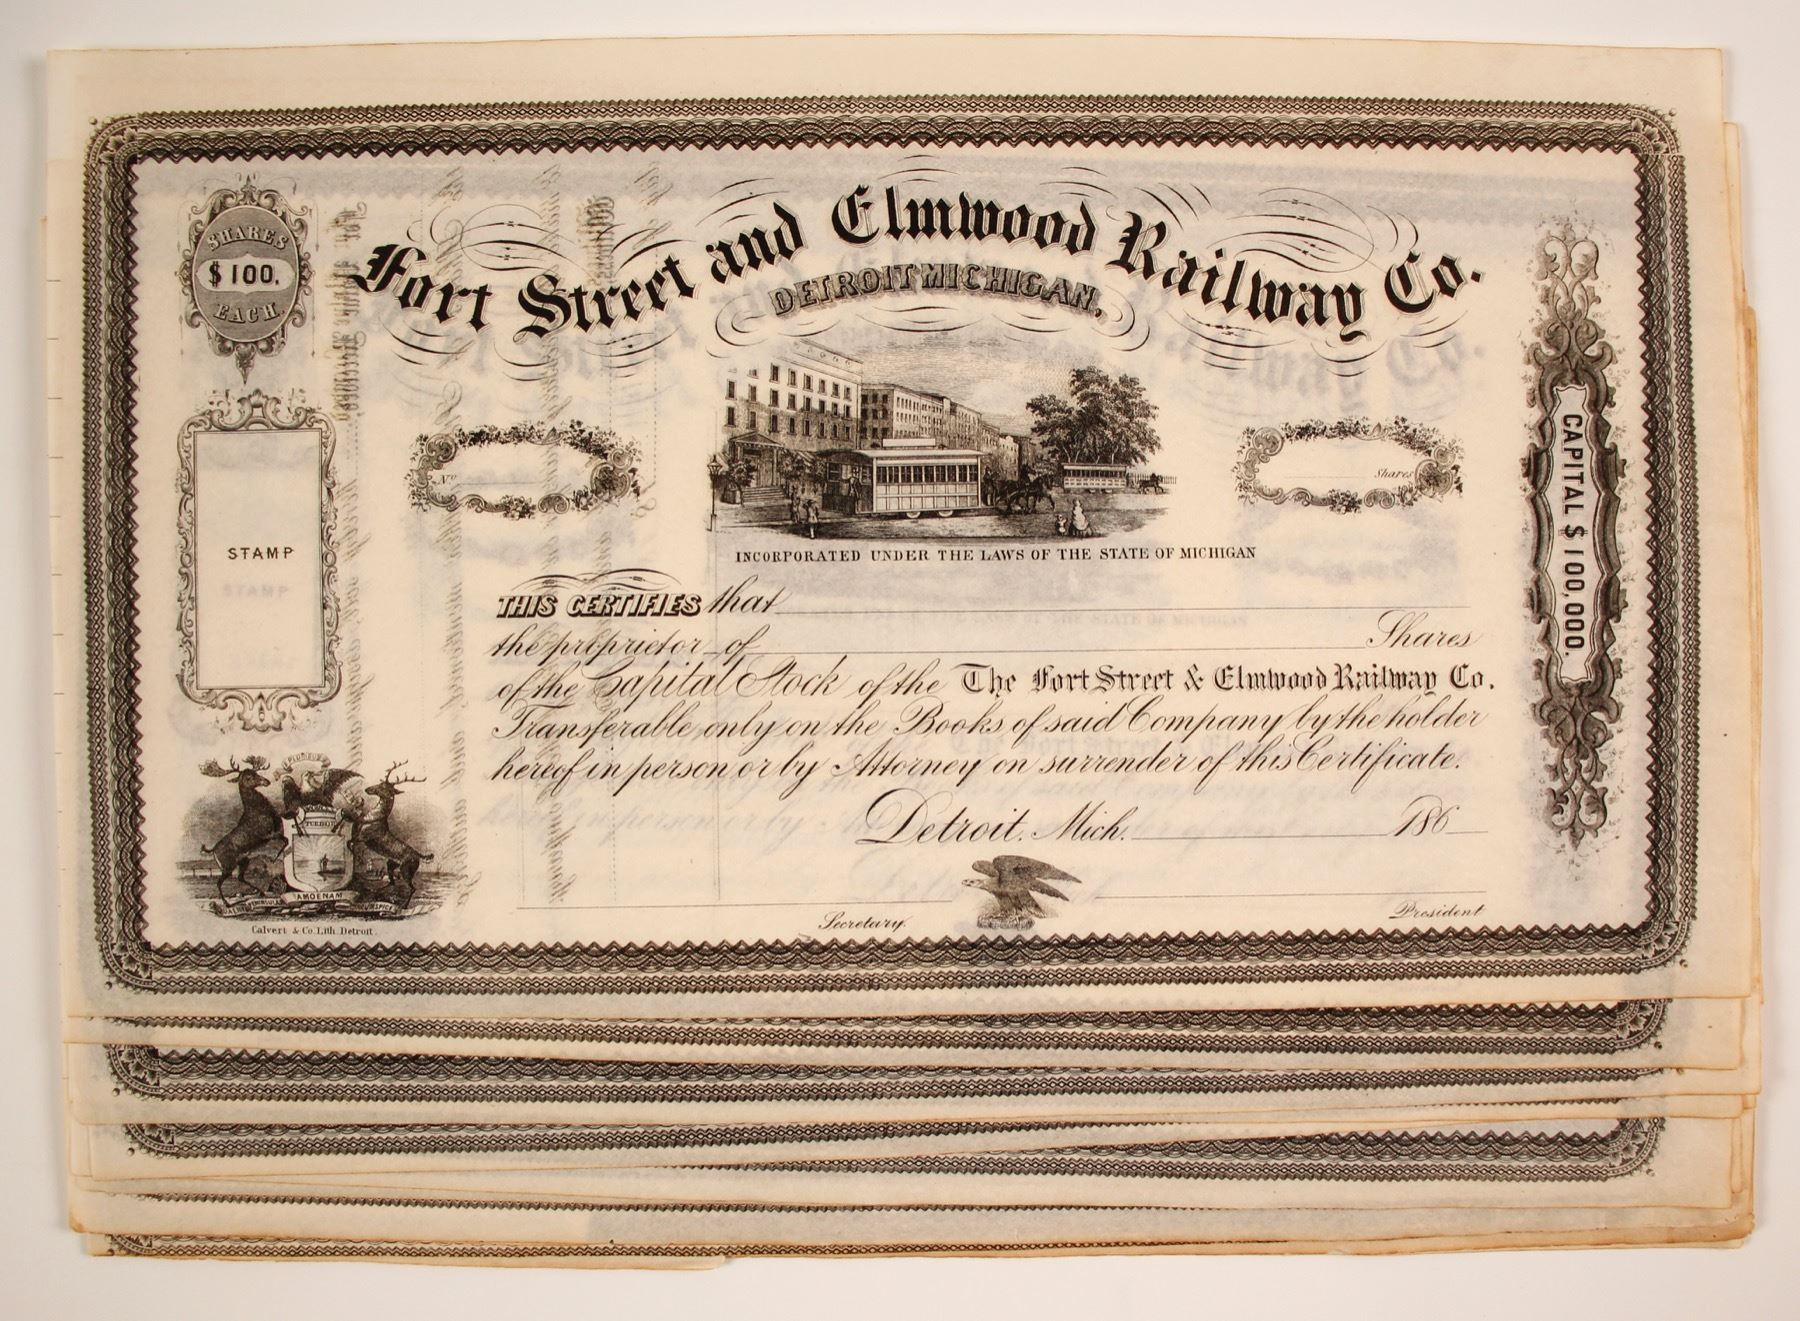 Fort Street and Elmwood Railway Co.
DETROIT MICHIGAN.
SHARES
$100.
EACH.
STAMP
STAMP
No
Shares
CAPITAL $100,000.
INCORPORATED UNDER THE LAWS OF THE STATE OF MICHIGAN
THIS CERTIFIES that
the proprietor of Shares
of the Capital Stock of the The Fort Street & Elmwood Railway Co.
Transferable only on the Books of said Company by the holder
hereof in person or by Attorney on surrender of this Certificate.
Detroit. Mich. 186
Secretary.
President
TUEBOR
AMOENAM
Calvert & Co. Lith. Detroit.